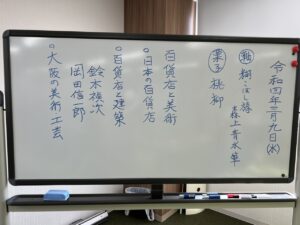 令和四年三月九日(水)
森上青水華
栗子 桃柳
百貨店と美術
○日本の百貨店
○百貨店と建築
鈴木禎次
岡田信一郎
○大阪の美術工芸